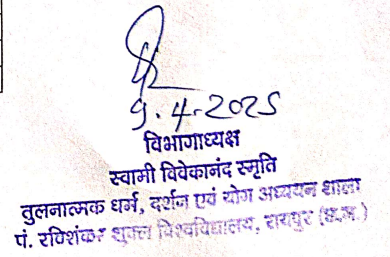 9.4.2025
विभागाध्यक्ष
स्वामी विवेकानंद स्मृति
तुलनात्मक धर्म, दर्शन एवं योग अध्ययन शाला
पं. रविशंकर शुक्ल विश्वविद्यालय, रायपुर (छ.ग.)